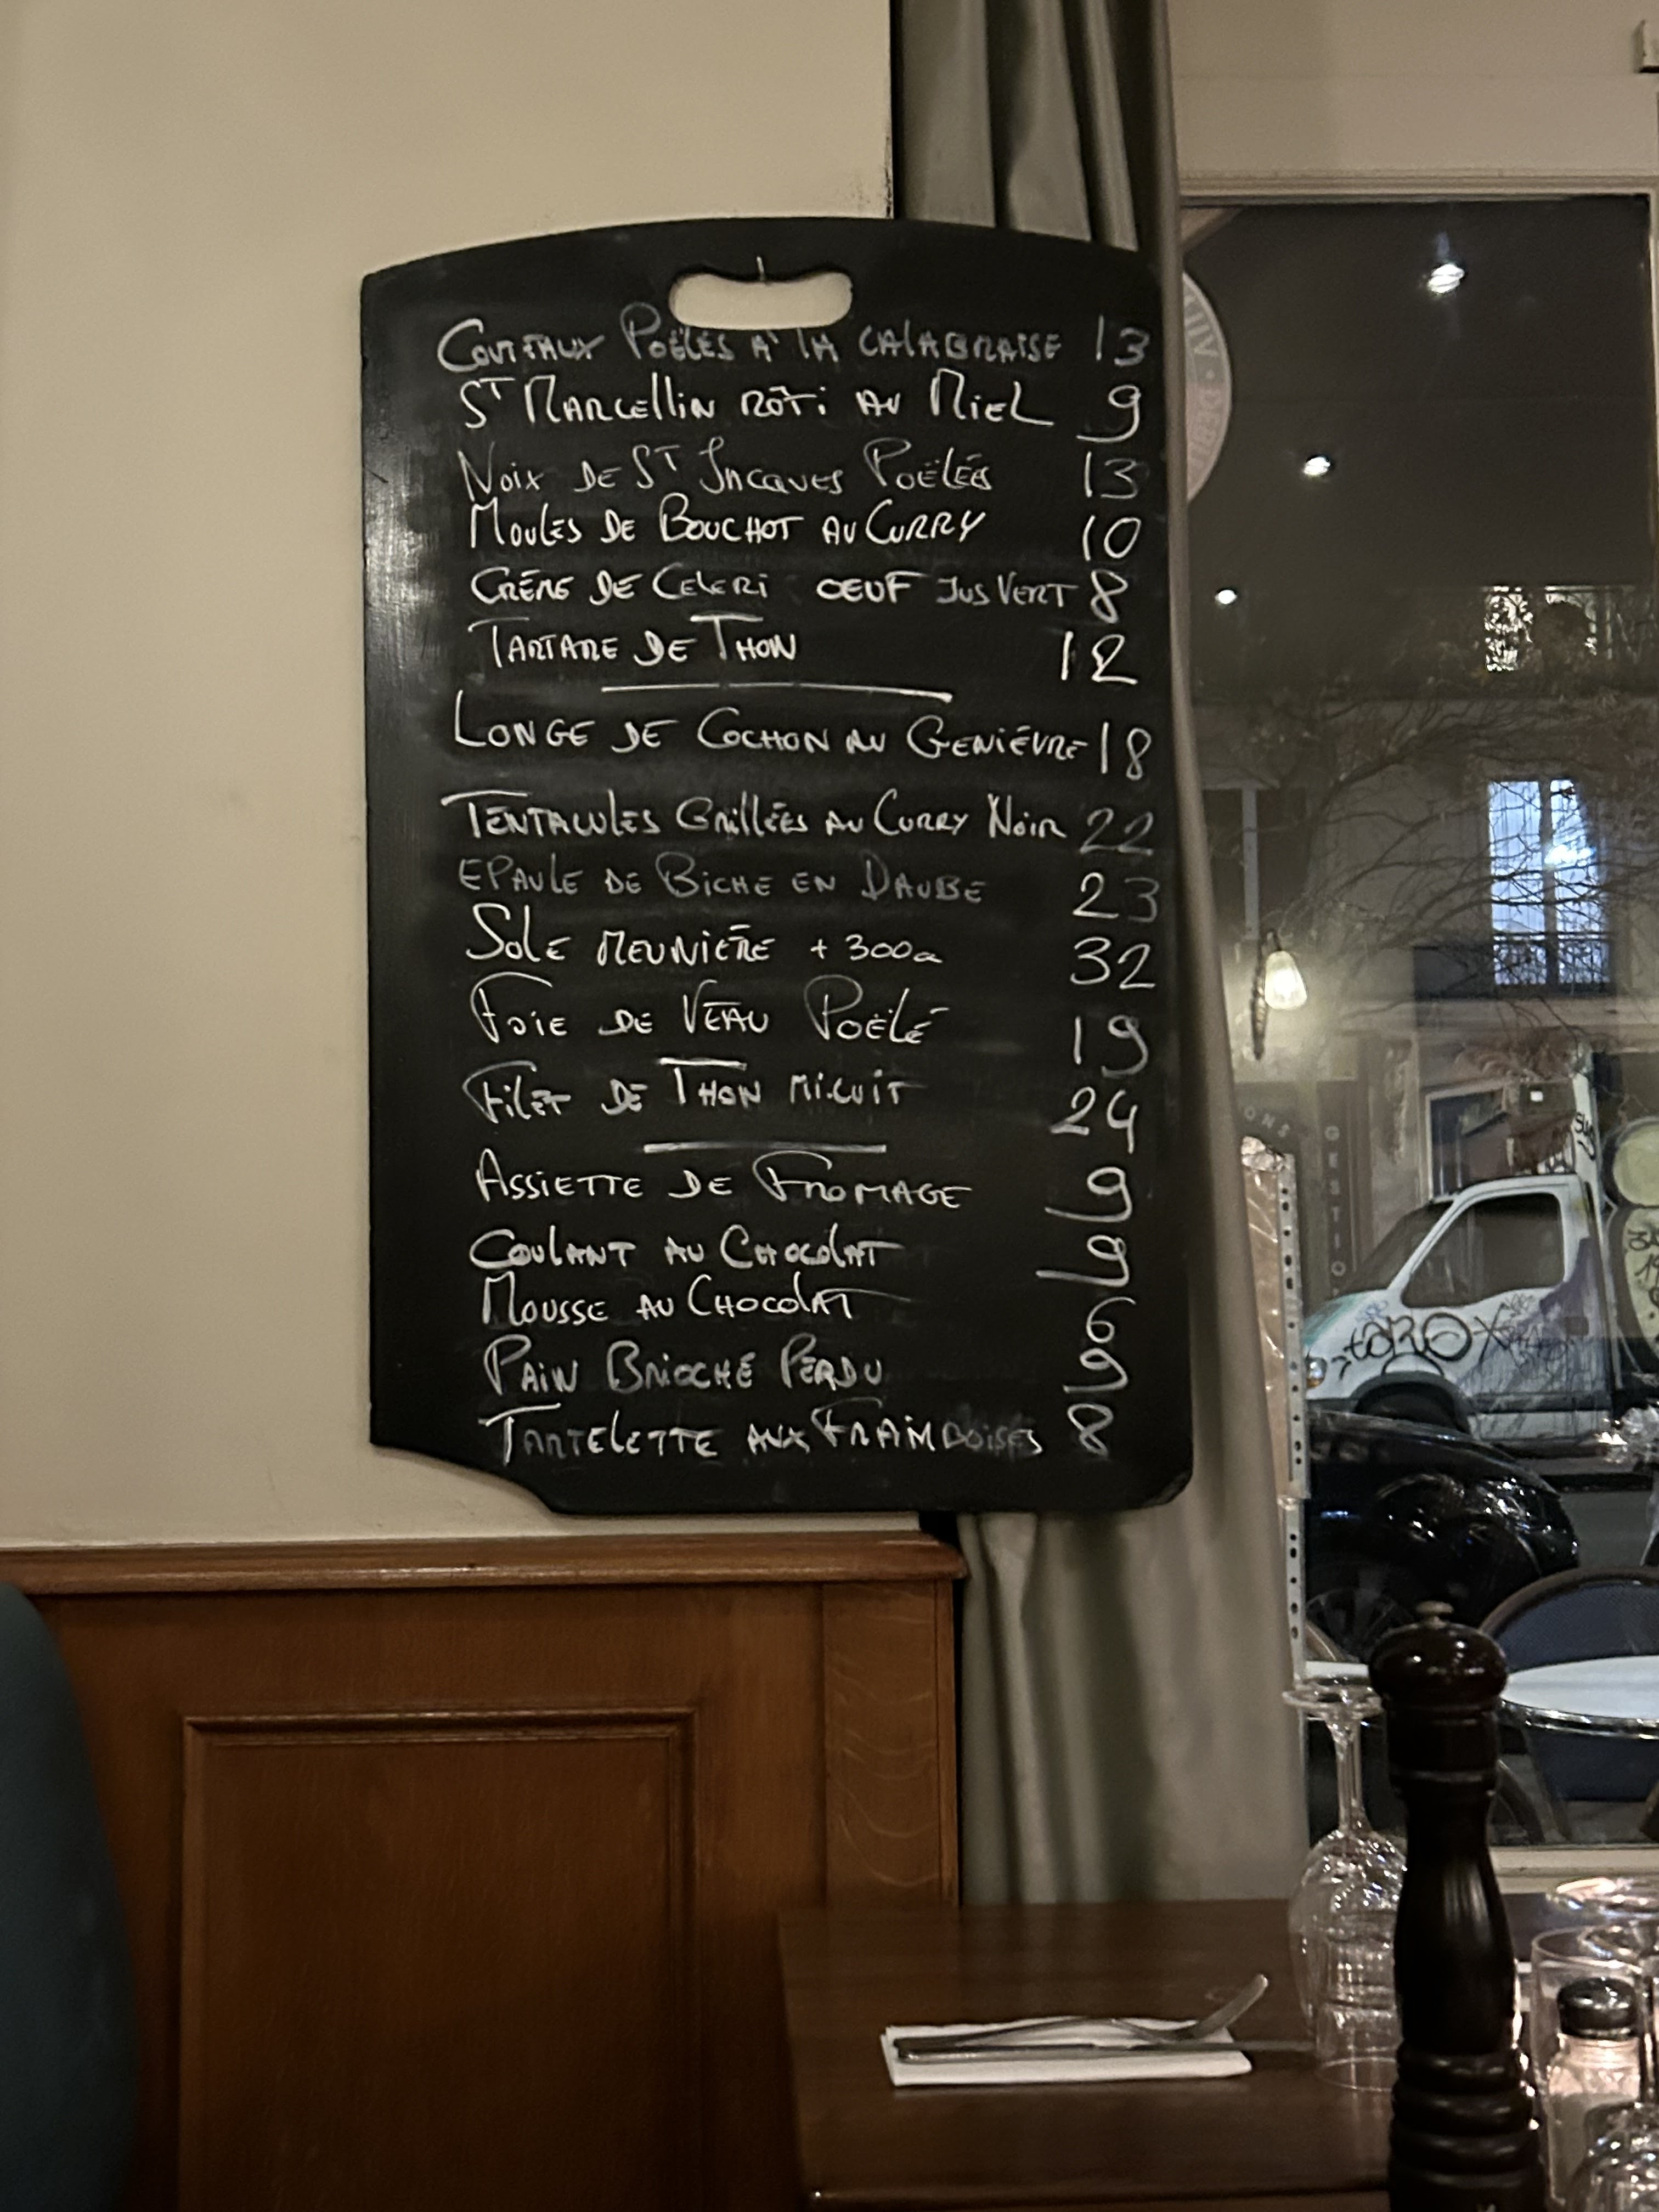 COUTEAUX POËLÉS À LA CALABRAISE 13
ST MARCELLIN RÔTI AU MIEL 9
NOIX DE ST JACQUES POËLÉES 13
MOULES DE BOUCHOT AU CURRY 10
CRÈME DE CELERI OEUF JUS VERT 8
TARTARE DE THON 12
LONGE DE COCHON AU GENIÉVRE 18
TENTACULES GRILLÉES AU CURRY NOIR 22
EPAULE DE BICHE EN DAUBE 23
SOLE MEUNIÈRE +300G 32
FOIE DE VEAU POËLÉ 19
FILET DE THON MI-CUIT 24
ASSIETTE DE FROMAGE 9
COULANT AU CHOCOLAT 9
MOUSSE AU CHOCOLAT 6
PAIN BRIOCHÉ PERDU 9
TARTELETTE AUX FRAMBOISES 8